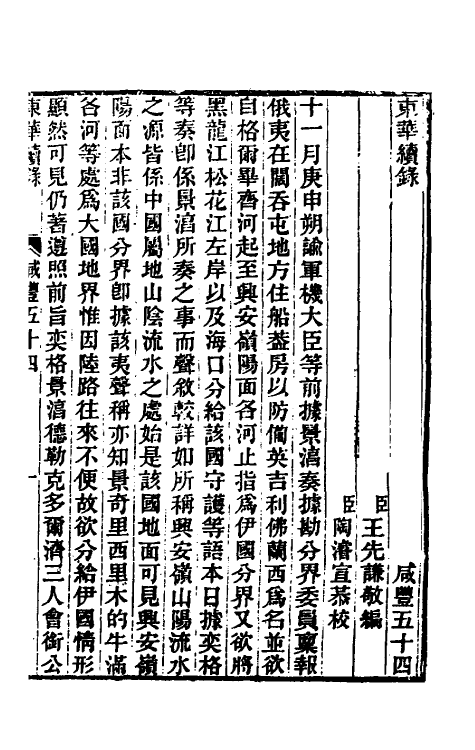 東華續錄　咸豐五十四
臣王先謙敬編
臣陶濬宣恭校
十一月庚申朔諭軍機大臣等前據景淳奏據勘分界委員稟報
俄夷在闊吞屯地方住船蓋房以防備英吉利佛蘭西爲名並欲
自格爾畢齊河起至興安嶺陽面各河止指爲伊國分界又欲將
黑龍江松花江左岸以及海口分給該國守護等語本日據奕格
等奏卽係景淳所奏之事而聲敘較詳如所稱興安嶺山陽流水
之源皆係中國屬地山陰流水之處始是該國地面可見興安嶺
陽面本非該國分界卽據該夷聲稱亦知景奇里西里木的牛滿
各河等處爲大國地界惟因陸路往來不便故欲分給伊國情形
顯然可見仍著遵照前旨奕格景淳德勒克多爾濟三人會銜公
東華續錄　咸豐五十四　一